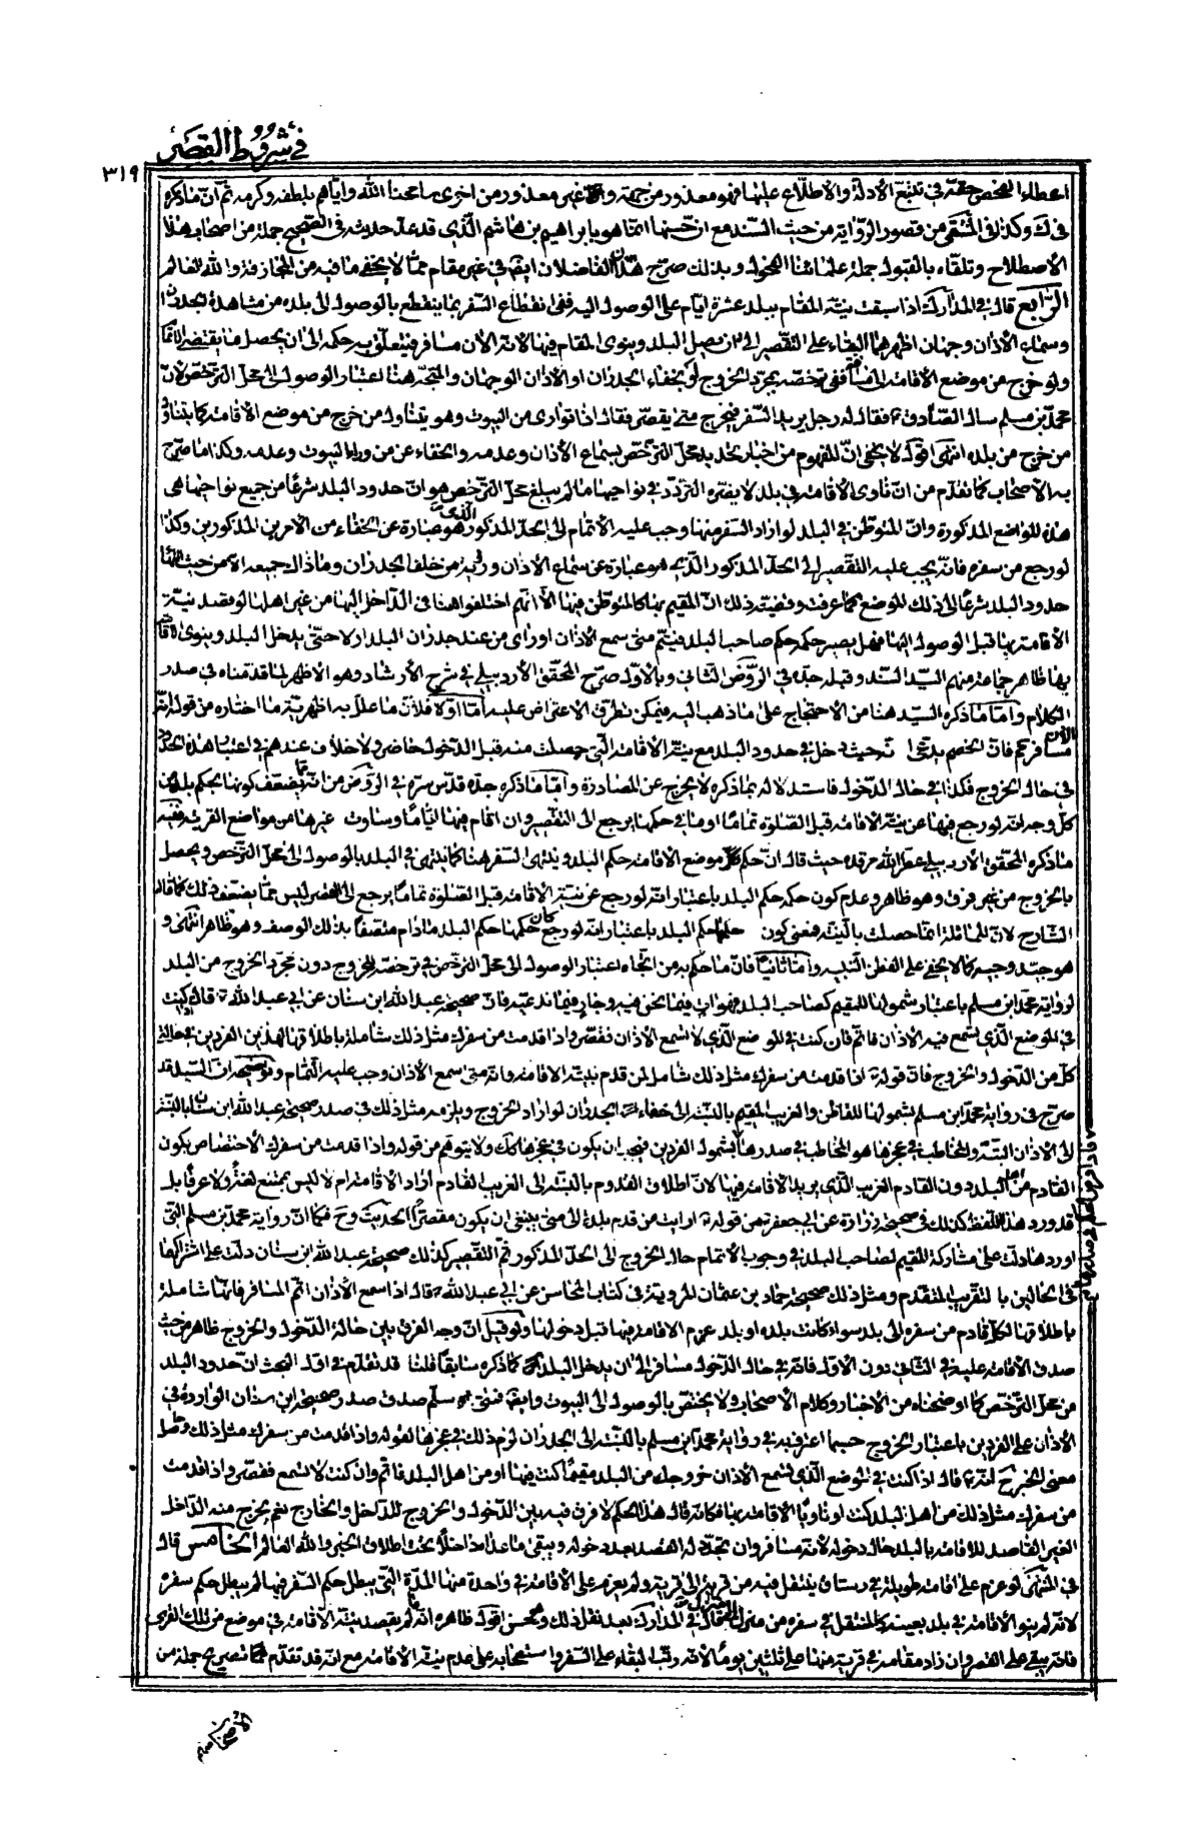 في شروط القصر
٣١٩
اعطاء الفحص حقه في تتبع الأدلة والاطلاع عليها فهو معذور من جهة وغير معذور من اخرى سامحنا الله واياهم بلطفه وكرمه ثم ان ما ذكره
في ك وكذا في المنتقى من قصور الرواية من حيث السند مع ان حسنها انما هو بابراهيم بن هاشم الذي قد عد حديثه في الصحيح جملة من اصحاب هذا
الاصطلاح وتلقاه بالقبول جملة علمائنا الفحول وبذلك صرح هذان الفاضلان ايضا في غير مقام مما لا يخفى ما فيه من المجازفة والله العالم
الرابع قال في المدارك اذا سبقت نية المقام ببلد عشرة ايام على الوصول اليه ففي انقطاع السفر بما ينقطع بالوصول الى بلده من مشاهدة الجدران
وسماع الأذان وجهان اظهرهما البقاء على التقصير الى ان يصل البلد وينوي المقام فيها لانه الآن مسافر فيتعلق به حكمه الى ان يحصل ما يقتضي الاتمام
ولو خرج من موضع الاقامة الى ففي ترخصه بمجرد الخروج او بخفاء الجدران او الاذان الوجهان والمتجه هنا اعتبار الوصول الى محل الترخص لان
محمد بن مسلم سال الصادق ع فقال له رجل يريد السفر فيخرج متى يقصر فقال اذا توارى من البيوت وهو يتناول من خرج من موضع الاقامة كما يتناول
من خرج من بلده انتهى اقول لا يخفى ان المفهوم من اخبار تحديد محل الترخص بسماع الأذان وعدمه والخفاء عن من وراء البيوت وعدمه وكذا ما صرح
به الاصحاب كما تقدم من ان ناوي الاقامة في بلد لا يضره التردد في نواحيها ما لم يبلغ محل الترخص هو ان حدود البلد شرعا من جميع نواحيها هي
هذه المواضع المذكورة وان المتوطن في البلد لو اراد السفر منها وجب عليه الاتمام الى الحد المذكور الذي هو عبارة عن الخفاء من الامرين المذكورين وكذا
لو رجع من سفره فانه يجب عليه التقصير الى الحد المذكور الذي هو عبارة عن سماع الأذان ورؤية من خلف الجدران وما ذاك جميعه الا من حيث انتهاء
حدود البلد شرعا الى ذلك الموضع كما عرفت وقضية ذلك ان المقيم بها كالمتوطن فيها الا انهم اختلفوا هنا في الداخل اليها من غير اهلها لو قصد نية
الاقامة بها قبل الوصول اليها فهل يصير حكمه حكم صاحب البلد فيتم متى سمع الاذان او راى من عند جدران البلد او لا حتى يدخل البلد وينوي الاقامة
بها ظاهر جماعة منهم السيد السند وقبله جده في الروض الثاني وبالأول صرح المحقق الاردبيلي في شرح الارشاد وهو الاظهر لما قدمناه في صدر
الكلام واما ما ذكره السيد هنا من الاحتجاج على ما ذهب اليه فيمكن تطرق الاعتراض عليه اما اولا فلأن ما علل به اظهرية ما اختاره من قوله انه
الان مسافر فان الخصم يدعي انه حيث دخل في حدود البلد مع نية الاقامة التي حصلت منه قبل الدخول حاضر ولا خلاف عندهم في اعتبار هذه الحدود
في حال الخروج فكذا في حال الدخول فاستدلاله بما ذكره لا يخرج عن المصادرة واما ما ذكره جده قدس سره في الروض من انه يضعف كونها بحكم بلده من
كل وجه انه لو رجع فيها عن نية الاقامة قبل الصلوة تماما او ما في حكمها يرجع الى التقصير وان اقام فيها اياما وساوت غيرها من مواضع القرية ففيه
ما ذكره المحقق الاردبيلي عطر الله مرقده حيث قال ان حكم كل موضع الاقامة حكم البلد وينتهي السفر هنا كما ينتهي في البلد بالوصول الى محل الترخص ويحصل
بالخروج من غير فرق وهو ظاهر وعدم كون حكمه حكم البلد باعتبار انه لو رجع عن نية الاقامة قبل الصلوة تماما يرجع الى القصر ليس مما يضعف ذلك كما قال
الشارح لان المماثلة انما حصلت بالنية فمعنى كون حكمها حكم البلد باعتبار انه لو رجع كان حكمها حكم البلد ما دام متصفا بذلك الوصف وهو ظاهر انتهى و
هو جيد وجيه كما لا يخفى على الفطن النبيه واما ثانيا فان ما حكم به من اتجاه اعتبار الوصول الى محل الترخص في ترخصه للخروج دون مجرد الخروج من البلد
لرواية محمد بن مسلم باعتبار شمولها للمقيم كصاحب البلد فهو آت فيما نحن فيه وجار فيما ندعيه فان صحيحة عبد الله ابن سنان عن ابي عبد الله ع قال اذا كنت
في الموضع الذي تسمع فيه الاذان فاتم فان كنت في الموضع الذي لا تسمع الاذان فقصر واذا قدمت من سفرك مثل ذلك شاملة باطلاقها لهذين الفردين في حالة
كل من الدخول والخروج فان قوله اذا قدمت من سفرك مثل ذلك شامل لمن قدم بنية الاقامة وانه متى سمع الأذان وجب عليه التمام وتوضيحه ان السيد قد
صرح في رواية محمد ابن مسلم بشمولها للقاطن والغريب المقيم بالنسبة الى خفاء الجدران لو اراد الخروج ويلزمه مثل ذلك في صدر صحيحة عبد الله ابن سنان بالنسبة
الى الاذان البتة والمخاطب في عجزها هو المخاطب في صدرها فيجب ان يكون في عجزها كك ولا يتوهم من قوله واذا قدمت من سفرك الاختصاص بكون
القادم من اهل البلد دون القادم الغريب الذي يريد الاقامة فيها لان اطلاق القدوم بالنسبة الى الغريب القادم اراد الاقامة ام لا ليس بممتنع لغة ولا عرفا بل
قد ورد هذا اللفظ كذلك في صحيحة زرارة عن ابي جعفر ع من قوله ارايت من قدم بلدة الى متى ينبغي ان يكون مقصرا الحديث وح فكما ان رواية محمد بن مسلم التي
اوردها دلت على مشاركة المقيم لصاحب البلد في وجوب الاتمام حال الخروج الى الحد المذكور ثم التقصير كذلك صحيحة عبد الله ابن سنان دلت على اشتراكهما
في الحالين بالتقريب المتقدم ومثل ذلك صحيحة حماد بن عثمان المروية في كتاب المحاسن عن ابي عبد الله ع قال اذا سمع الأذان اتم المسافر فانها شاملة
باطلاقها لكل قادم من سفره الى بلد سواء كانت بلده او بلد عزم الاقامة فيها قبل دخولها ولو قيل ان وجه الفرق بين حالة الدخول والخروج ظاهر من حيث
صدق الاقامة عليه في الثاني دون الاول فانه في حال الدخول مسافر الى ان يدخل البلد كما ذكره سابقا قلنا قد تقدم في اول البحث ان حدود البلد
من محل الترخص كما اوضحناه من الاخبار وكلام الاصحاب ولا يختص بالوصول الى البيوت وايضا فمتى سلم صدق صدر صحيحة ابن سنان الواردة في
الأذان على الفردين باعتبار الخروج حسبما اعترف به في رواية محمد ابن مسلم بالنسبة الى الجدران لزم ذلك في عجزها لقوله واذا قدمت من سفرك مثل ذلك وحاصل
معنى الخبر ح انه ع قال اذا كنت في الموضع الذي تسمع الأذان خروجك من البلد مقيما كنت فيها او من اهل البلد فاتم وان كنت لا تسمع فقصر واذا قدمت
من سفرك مثل ذلك من اهل البلد كنت او ناويا الاقامة بها فكانه قال هذا الحكم لا فرق فيه بين الدخول والخروج للداخل والخارج نعم يخرج منه الداخل
الغير القاصد للاقامة بالبلد حال دخوله لانه مسافر وان تجدد له القصد بعد دخوله ويبقى ما عداه داخلا تحت اطلاق الخبر والله العالم الخامس قال
في المنتهى لو عزم على اقامة طويلة في رستاق ينتقل فيه من قرية الى قرية ولم يعزم على الاقامة في واحدة منها المدة التي يبطل حكم السفر فيها لم يبطل حكم سفره
لانه لم ينو الاقامة في بلد بعينه فكان كالمنتقل في سفره من منزل الى منزل قال في المدارك بعد نقل ذلك وهو حسن اقول ظاهره انه ما لم يقصد بنية الاقامة في موضع من تلك القرى
فانه يبقى على القصر وان زاد مقامه في قرية منها على ثلثين يوما لانه رتب البقاء على السفر واستصحابه على عدم نية الاقامة مع انه قد تقدم تصريح جملة من
الأصحاب